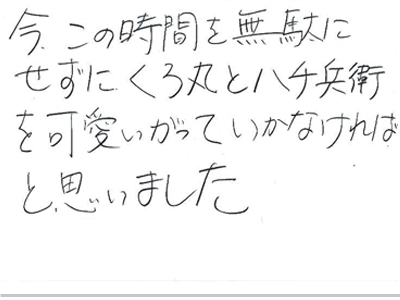 今、この時間を無駄に
せずにくろ丸とハチ兵衛
を可愛いがっていかなければ
と思いました